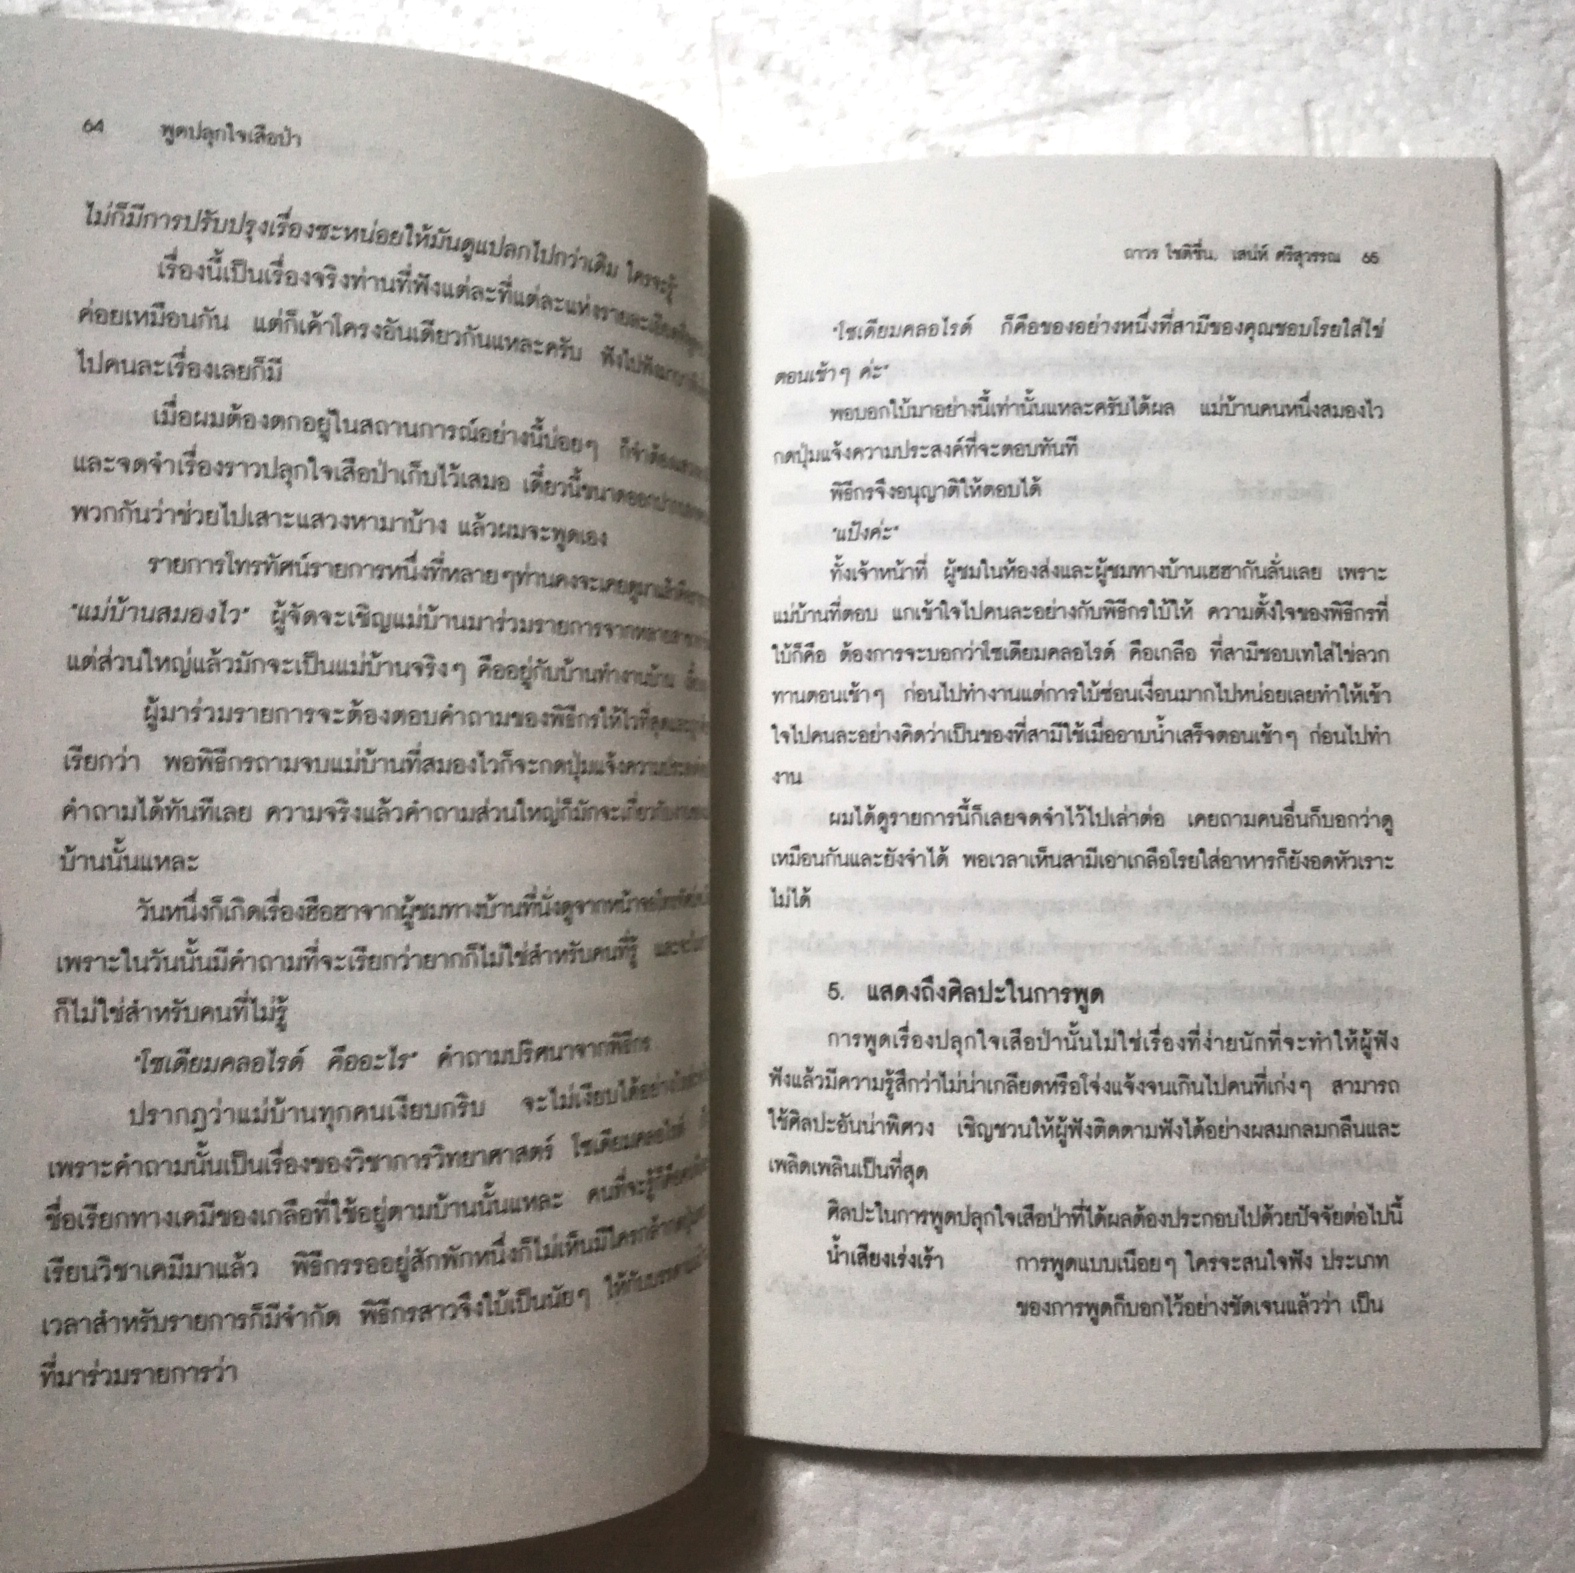 64 พูดปลุกใจเสือป่า
ไม่ก็มีการปรับปรุงเรื่องซะหน่อยให้มันดูแปลกไปกว่าเดิม ใครจะรู้
เรื่องนี้เป็นเรื่องจริงท่านที่ฟังแต่ละที่แต่ละแห่งรายละเอียด
ค่อยเหมือนกัน แต่ก็เค้าโครงอันเดียวกันแหละครับ ฟังไปฟังมา
ไปคนละเรื่องเลยก็มี
เมื่อผมต้องตกอยู่ในสถานการณ์อย่างนี้บ่อยๆ ก็จำต้อง
และจดจำเรื่องราวปลุกใจเสือป่าเก็บไว้เสมอ เดี๋ยวนี้ขนาดออกปาก
พวกกันว่าช่วยไปเสาะแสวงหามาบ้าง แล้วผมจะพูดเอง
รายการโทรทัศน์รายการหนึ่งที่หลายๆท่านคงจะเคยดูมาแล้ว
"แม่บ้านสมองไว" ผู้จัดจะเชิญแม่บ้านมาร่วมรายการจากหลาย
แต่ส่วนใหญ่แล้วมักจะเป็นแม่บ้านจริงๆ คืออยู่กับบ้านทำงานบ้าน
ผู้มาร่วมรายการจะต้องตอบคำถามของพิธีกรให้ไวที่สุดและ
เรียกว่า พอพิธีกรถามจบแม่บ้านที่สมองไวก็จะกดปุ่มแจ้งความประสงค์
คำถามได้ทันทีเลย ความจริงแล้วคำถามส่วนใหญ่ก็มักจะเกี่ยวกับ
บ้านนั้นแหละ
วันหนึ่งก็เกิดเรื่องฮือฮาจากผู้ชมทางบ้านที่นั่งดูจากหน้าจอโทรทัศน์
เพราะในวันนั้นมีคำถามที่จะเรียกว่ายากก็ไม่ใช่สำหรับคนที่รู้ และ
ก็ไม่ใช่สำหรับคนที่ไม่รู้
"โซเดียมคลอไรด์ คืออะไร" คำถามปริศนาจากพิธีกร
ปรากฏว่าแม่บ้านทุกคนเงียบกริบ จะไม่เงียบได้อย่างไร
เพราะคำถามนั้นเป็นเรื่องของวิชาการวิทยาศาสตร์ โซเดียมคลอไรด์
ชื่อเรียกทางเคมีของเกลือที่ใช้อยู่ตามบ้านนั้นแหละ คนที่จะรู้ก็ต้อง
เรียนวิชาเคมีมาแล้ว พิธีกรรออยู่สักพักหนึ่งก็ไม่เห็นมีใครกล้ากดปุ่ม
เวลาสำหรับรายการก็มีจำกัด พิธีกรสาวจึงใบ้เป็นนัยๆ ให้กับบรรดา
ที่มาร่วมรายการว่า
ถาวร โชติชื่น, เสน่ห์ ศรีสุวรรณ 65
"โซเดียมคลอไรด์ ก็คือของอย่างหนึ่งที่สามีของคุณชอบโรยใส่ไข่
ตอนเช้าๆ ค่ะ"
พอบอกใบ้มาอย่างนี้เท่านั้นแหละครับได้ผล แม่บ้านคนหนึ่งสมองไว
กดปุ่มแจ้งความประสงค์ที่จะตอบทันที
พิธีกรจึงอนุญาติให้ตอบได้
"แป้งค่ะ"
ทั้งเจ้าหน้าที่ ผู้ชมในห้องส่งและผู้ชมทางบ้านเฮฮากันลั่นเลย เพราะ
แม่บ้านที่ตอบ แกเข้าใจไปคนละอย่างกับพิธีกรใบ้ให้ ความตั้งใจของพิธีกรที่
ใบ้ก็คือ ต้องการจะบอกว่าโซเดียมคลอไรด์ คือเกลือ ที่สามีชอบเทใส่ไข่ลวก
ทานตอนเช้าๆ ก่อนไปทำงานแต่การใบ้ซ่อนเงื่อนมากไปหน่อยเลยทำให้เข้า
ใจไปคนละอย่างคิดว่าเป็นของที่สามีใช้เมื่ออาบน้ำเสร็จตอนเช้าๆ ก่อนไปทำ
งาน
ผมได้ดูรายการนี้ก็เลยจดจำไว้ไปเล่าต่อ เคยถามคนอื่นก็บอกว่าดู
เหมือนกันและยังจำได้ พอเวลาเห็นสามีเอาเกลือโรยใส่อาหารก็ยังอดหัวเราะ
ไม่ได้
5. แสดงถึงศิลปะในการพูด
การพูดเรื่องปลุกใจเสือป่านั้นไม่ใช่เรื่องที่ง่ายนักที่จะทำให้ผู้ฟัง
ฟังแล้วมีความรู้สึกว่าไม่น่าเกลียดหรือโจ่งแจ้งจนเกินไปคนที่เก่งๆ สามารถ
ใช้ศิลปะอันน่าพิศวง เชิญชวนให้ผู้ฟังติดตามฟังได้อย่างผสมกลมกลืนและ
เพลิดเพลินเป็นที่สุด
ศิลปะในการพูดปลุกใจเสือป่าที่ได้ผลต้องประกอบไปด้วยปัจจัยต่อไปนี้
น้ำเสียงเร่งเร้า การพูดแบบเนือยๆ ใครจะสนใจฟัง ประเภท
ของการพูดก็บอกไว้อย่างชัดเจนแล้วว่า เป็น